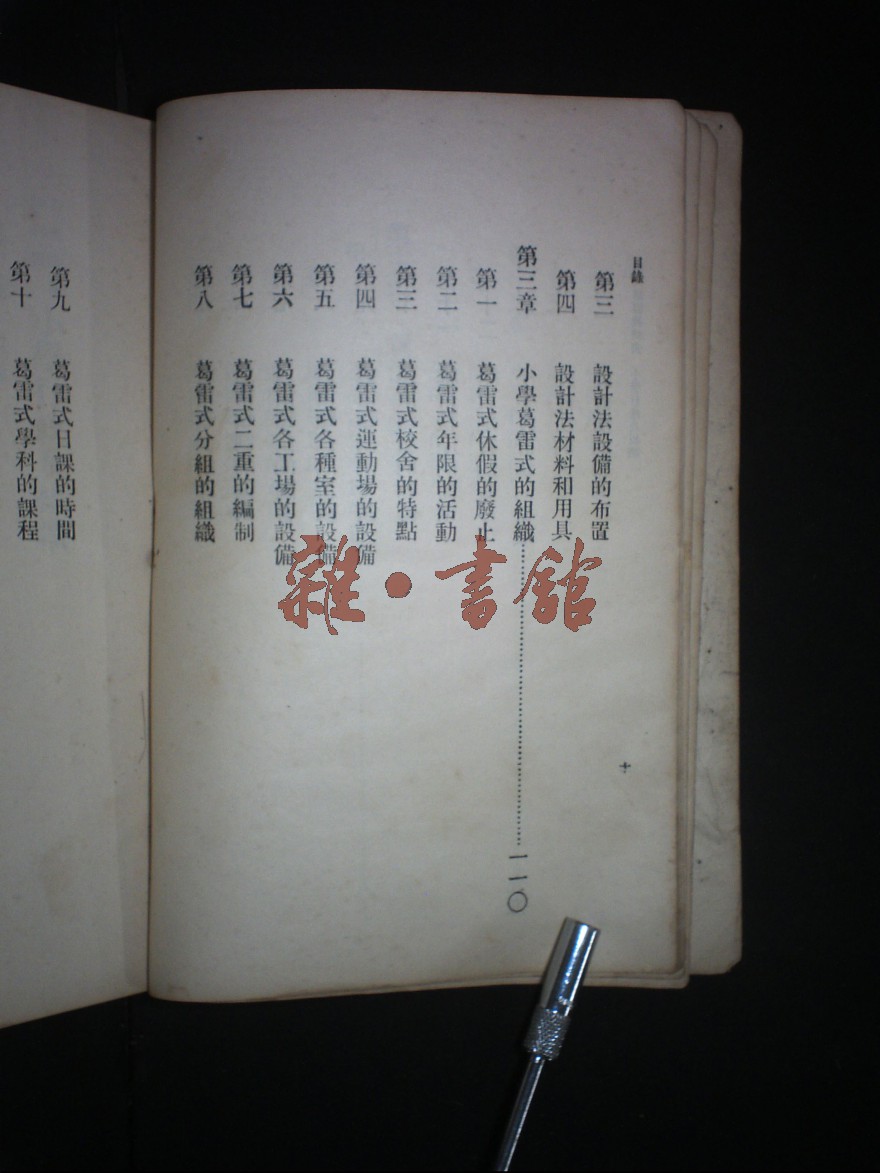 目錄
十
第三 設計法設備的布置
第四 設計法材料和用具
第三章 小學葛雷式的組織………一一〇
第一 葛雷式休假的廢止
第二 葛雷式年限的活動
第三 葛雷式校舍的特點
第四 葛雷式運動場的設備
第五 葛雷式各種室的設備
第六 葛雷式各工場的設備
第七 葛雷式二重的編制
第八 葛雷式分組的組織
第九 葛雷式日課的時間
第十 葛雷式學科的課程
雜·書館